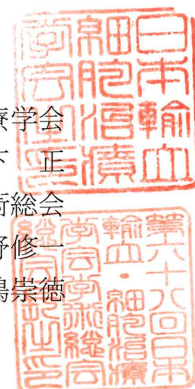 療学会
下 正
術総会
野修一
崇徳
日本輸血
細胞治療
学会之印
第六十八回日本
輸血・細胞治療
学会学術総会